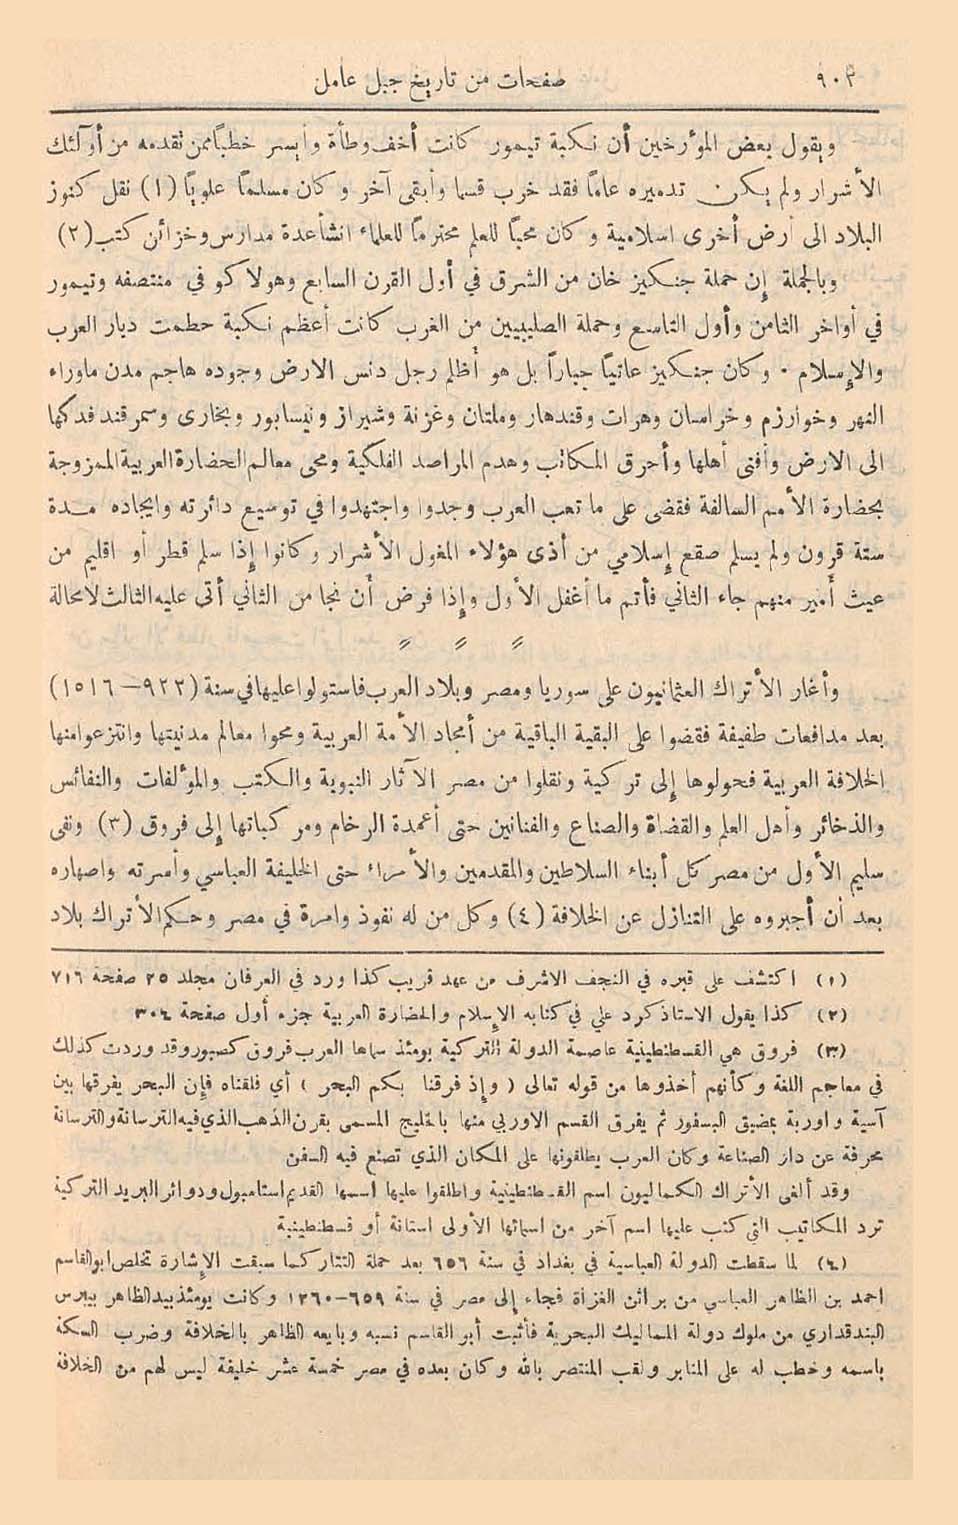 ٩٠٣ صفحات من تاريخ جبل عامل
ويقول بعض المؤرخين أن نكبة تيمور كانت أخف وطأة وأيسر خطباً ممن تقدمه من أولئك
الأشرار ولم يكن تدميره عاماً فقد خرب قسما وأبقى آخر وكان مسلماً علوياً (١) نقل كنوز
البلاد الى أرض أخرى اسلامية وكان محباً للعلم محترماً للعلماء انشأ عدة مدارس وخزائن كتب (٢)
وبالجملة إن حملة جنكيز خان من الشرق في أول القرن السابع وهولاكو في منتصفه وتيمور
في أواخر الثامن وأول التاسع وحملة الصليبيين من الغرب كانت أعظم نكبة حطمت ديار العرب
والإسلام . وكان جنكيز عاتياً جباراً بل هو أظلم رجل دنس الارض وجوده هاجم مدن ماوراء
النهر وخوارزم وخراسان وهرات وقندهار وملتان وغزنة وشيراز ونيسابور وبخارى وسمرقند فدكها
الى الارض وأفنى أهلها وأحرق المكاتب وهدم المراصد الفلكية ومحى معالم الحضارة العربية الممزوجة
بحضارة الأمم السالفة فقضى على ما تعب العرب وجدوا واجتهدوا في توسيع دائرته وايجاده مدة
ستة قرون ولم يسلم صقع إسلامي من أذى هؤلاء المغول الأشرار وكانوا إذا سلم قطر أو اقليم من
عيث أمير منهم جاء الثاني فأتم ما أغفل الأول وإذا فرض أن نجا من الثاني أتى عليه الثالث لامحالة
وأغار الأتراك العثمانيون على سوريا ومصر وبلاد العرب فاستولوا عليها في سنة (٩٢٢ — ١٥١٦)
بعد مدافعات طفيفة فقضوا على البقية الباقية من أمجاد الأمة العربية ومحوا معالم مدنيتها وانتزعوا منها
الخلافة العربية فحولوها إلى تركية ونقلوا من مصر الآثار النبوية والكتب والمؤلفات والنفائس
والذخائر وأهل العلم والقضاة والصناع والفنانين حتى أعمدة الرخام ومركباتها إلى فروق (٣) ونفى
سليم الأول من مصر كل أبناء السلاطين والمقدمين والأمراء حتى الخليفة العباسي وأسرته واصهاره
بعد أن أجبروه على التنازل عن الخلافة (٤) وكل من له نفوذ وامرة في مصر وحكم الأتراك بلاد
(١) اكتشف على قبره في النجف الاشرف من عهد قريب كذا ورد في العرفان مجلد ٢٥ صفحة ٧١٦
(٢) كذا يقول الاستاذ كرد علي في كتابه الإسلام والحضارة العربية جزء أول صفحة ٣٠٤
(٣) فروق هي القسطنطينية عاصمة الدولة التركية يومئذ سماها العرب فروق كصبور وقد وردت كذلك
في معاجم اللغة وكأنهم أخذوها من قوله تعالى ( وإذ فرقنا بكم البحر ) أي فلقناه فإن البحر يفرقها بين
آسية واوربة بمضيق البسفور ثم يفرق القسم الاوربي منها بالخليج المسمى بقرن الذهب الذي فيه الترسانة والترسانة
محرفة عن دار الصناعة وكان العرب يطلقونها على المكان الذي تصنع فيه السفن
وقد ألغى الأتراك الكماليون اسم القسطنطينية واطلقوا عليها اسمها القديم استامبول ودوائر البريد التركية
ترد المكاتيب التي كتب عليها اسم آخر من اسمائها الأولى استانة أو قسطنطينية
(٤) لما سقطت الدولة العباسية في بغداد في سنة ٦٥٦ بعد حملة التتار كما سبقت الإشارة تخلص ابو القاسم
احمد بن الظاهر العباسي من براثن الغزاة فجاء إلى مصر في سنة ٦٥٩—١٢٦٠ وكانت يومئذ بيد الظاهر بيبرس
البندقداري من ملوك دولة المماليك البحرية فأثبت أبو القاسم نسبه وبايعه الظاهر بالخلافة وضرب السكة
باسمه وخطب له على المنابر ولقب المنتصر بالله وكان بعده في مصر خمسة عشر خليفة ليس لهم من الخلافة